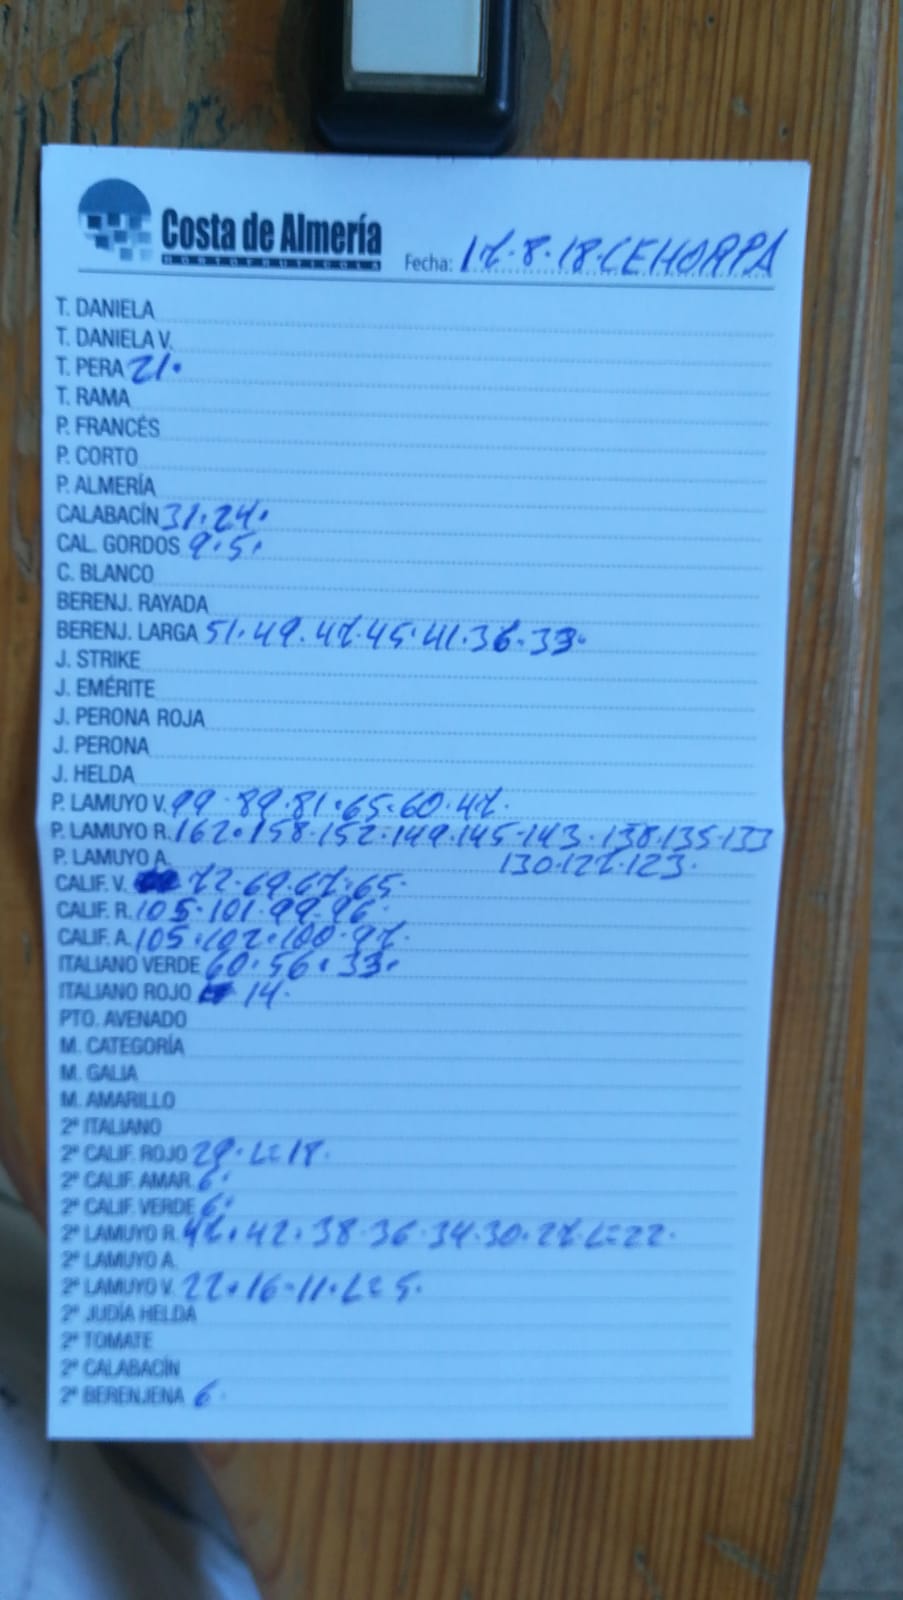 Costa de Almería
HORTOFRUTICOLA
Fecha: 17.8.18.CEHORPA
T. DANIELA
T. DANIELA V.
T. PERA 21.
T. RAMA
P. FRANCÉS
P. CORTO
P. ALMERÍA
CALABACÍN 31.24.
CAL. GORDOS 9.5.
C. BLANCO
BERENJ. RAYADA
BERENJ. LARGA 51.49.47.45.41.36.33.
J. STRIKE
J. EMÉRITE
J. PERONA ROJA
J. PERONA
J. HELDA
P. LAMUYO V. 99.89.81.65.60.47.
P. LAMUYO R. 162.158.152.149.145.143.138.135.133
P. LAMUYO A. 130.127.123.
CALIF. V. 72.69.67.65.
CALIF. R. 105.101.99.96.
CALIF. A. 105.102.100.97.
ITALIANO VERDE 60.56.33.
ITALIANO ROJO 14.
PTO. AVENADO
M. CATEGORÍA
M. GALIA
M. AMARILLO
2ª ITALIANO
2ª CALIF. ROJO 29.L=18.
2ª CALIF. AMAR. 6.
2ª CALIF. VERDE 6.
2ª LAMUYO R. 47.42.38.36.34.30.27.L=22.
2ª LAMUYO A.
2ª LAMUYO V. 22.16.11.L=5.
2ª JUDÍA HELDA
2ª TOMATE
2ª CALABACÍN
2ª BERENJENA 6.